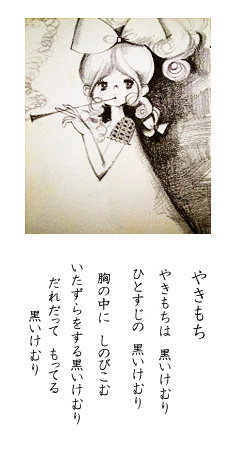 やきもち
やきもちは　黒いけむり
ひとすじの　黒いけむり
胸の中に　しのびこむ
いたずらをする黒いけむり
だれだって　もってる
黒いけむり